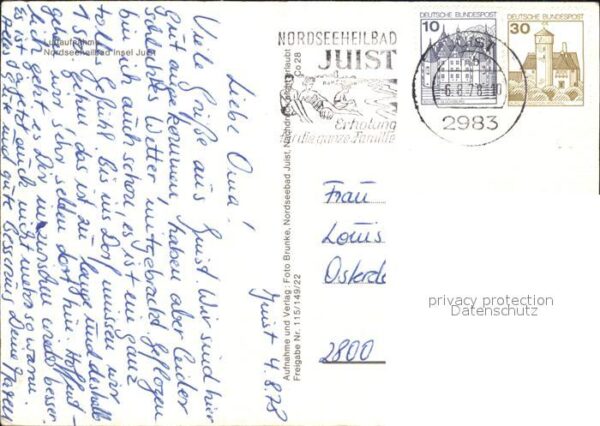 Luftaufnahme
Nordseeheilbad Insel Juist
Juist 4.8.78
Liebe Oma!
Viele Grüße aus Juist. Wir sind hier
gut angekommen, haben aber leider
schlechtes Wetter mitgebracht. Geflogen
bin ich auch schon, es ist ein ganz
tolles Gefühl. Bis ins Dorf müssen wir
gehen, das ist zu lange und deshalb
wir sehr selten dort hin. Hoffent-
lich geht es Dir inzwischen wieder besser.
Es ist jetzt auch nicht mehr so warm.
Alles Gute und gute Besserung Deine
Aufnahme und Verlag: Foto Brunke, Nordseebad Juist, Nachdruck
Freigabe Nr. 115/149/22
NORDSEEHEILBAD
JUIST
Erholung
für die ganze Familie
DEUTSCHE BUNDESPOST
10
DEUTSCHE BUNDESPOST
30
JUIST
-6.8.78-10
2983
Frau
Louis
Osterde
2800
privacy protection
Datenschutz